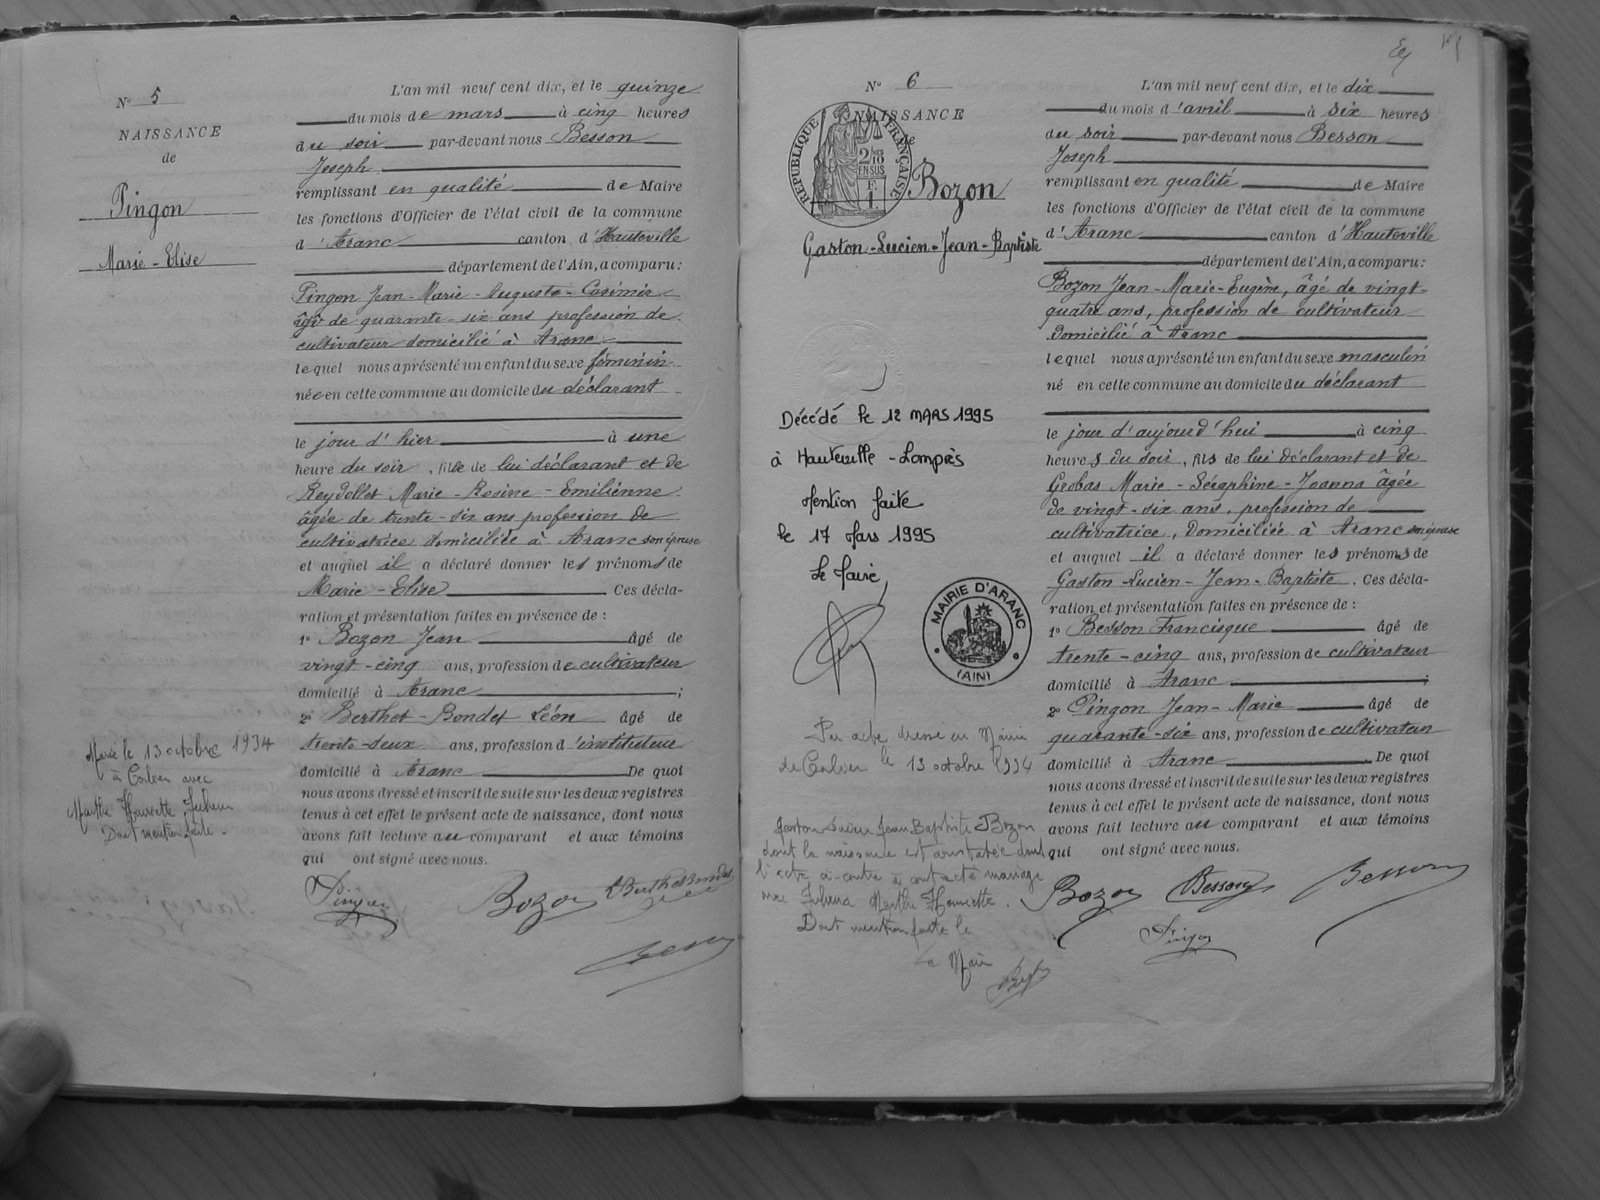 N° 5
NAISSANCE
de
Pingon
Marie - Elise
Marié le 13 octobre 1934
à Corlier avec
Marthe Henriette Juhem
Dont mention faite.
L'an mil neuf cent dix, et le quinze
du mois de mars à cinq heures
du soir par-devant nous Besson
Joseph
remplissant en qualité de Maire
les fonctions d'Officier de l'état civil de la commune
d'Aranc canton d'Hauteville
département de l'Ain, a comparu :
Pingon Jean - Marie - Auguste - Casimir
âgé de quarante - six ans profession de
cultivateur domicilié à Aranc
lequel nous a présenté un enfant du sexe féminin
née en cette commune au domicile du déclarant
le jour d'hier à une
heure du soir, fille de lui déclarant et de
Reydellet Marie - Rosine - Emilienne
âgée de trente - six ans profession de
cultivatrice domiciliée à Aranc son épouse
et auquel il a déclaré donner les prénoms de
Marie - Elise Ces décla-
ration et présentation faites en présence de :
1° Bozon Jean âgé de
vingt - cinq ans, profession de cultivateur
domicilié à Aranc ;
2° Berthet - Bondet Léon âgé de
trente - deux ans, profession d'instituteur
domicilié à Aranc De quoi
nous avons dressé et inscrit de suite sur les deux registres
tenus à cet effet le présent acte de naissance, dont nous
avons fait lecture au comparant et aux témoins
qui ont signé avec nous.
Pingon Bozon L Berthet Bondet
Besson
N° 6
NAISSANCE
de
RÉPUBLIQUE FRANÇAISE
EN SUS
Bozon
Gaston - Lucien - Jean - Baptiste
Décédé le 12 MARS 1995
à Hauteville - Lompnès
Mention faite
le 17 Mars 1995
Le Maire
MAIRIE D'ARANC
(AIN)
Par acte dressé en Mairie
de Corlier le 13 octobre 1934
Gaston Lucien Jean Baptiste Bozon
dont la naissance est constatée dans
l'acte ci-contre a contracté mariage
avec Juhem Marthe Henriette.
Dont mention faite le
Le Maire
L'an mil neuf cent dix, et le dix
du mois d'avril à six heures
du soir par-devant nous Besson
Joseph
remplissant en qualité de Maire
les fonctions d'Officier de l'état civil de la commune
d'Aranc canton d'Hauteville
département de l'Ain, a comparu :
Bozon Jean - Marie - Eugène, âgé de vingt-
quatre ans, profession de cultivateur
domicilié à Aranc
lequel nous a présenté un enfant du sexe masculin
né en cette commune au domicile du déclarant
le jour d'aujourd'hui à cinq
heures du soir, fils de lui déclarant et de
Grobas Marie - Séraphine - Jeanna âgée
de vingt - six ans, profession de
cultivatrice, domiciliée à Aranc son épouse
et auquel il a déclaré donner les prénoms de
Gaston - Lucien - Jean - Baptiste. Ces décla-
ration et présentation faites en présence de :
1° Besson Francisque âgé de
trente - cinq ans, profession de cultivateur
domicilié à Aranc ;
2° Pingon Jean - Marie âgé de
quarante - six ans, profession de cultivateur
domicilié à Aranc De quoi
nous avons dressé et inscrit de suite sur les deux registres
tenus à cet effet le présent acte de naissance, dont nous
avons fait lecture au comparant et aux témoins
qui ont signé avec nous.
Bozon Besson Besson
Pingon